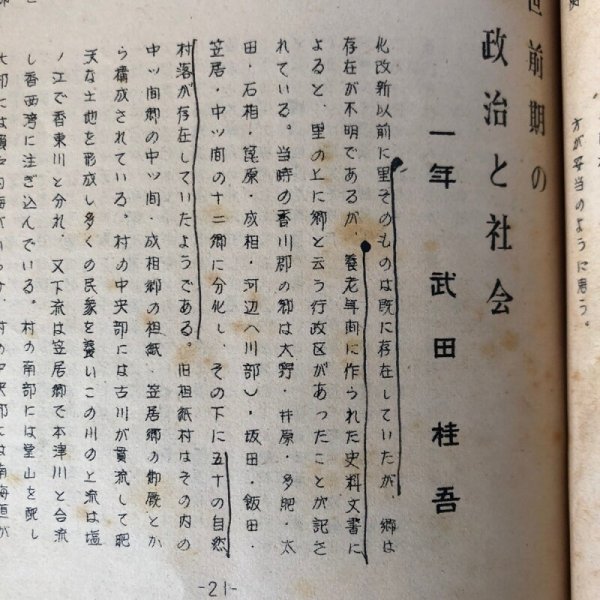 世前期の
政治と社会
一年 武田桂吾
化改新以前に里そのものは既に存在していたが、郷は
存在が不明であるが、養老年間に作られた史料文書に
よると、里の上に郷と云う行政区があったことが記さ
れている。当時の香川郡の郷は大野・井原・多肥・太
田・石相・箟原・成相・河辺(川部)・坂田・飯田・
笠居・中ツ間の十二郷に分化し、その下に五十の自然
村落が存在していたようである。旧祖紙村はその内の
中ツ間郷の中ツ間・成相郷の祖紙・笠居郷の御厩とか
ら構成されている。村の中央部には古川が貫流して肥
夭な土地を形成し多くの民衆を養いこの川の上流は塩
ノ江で香東川と分れ、又下流は笠居郷で本津川と合流
し香西湾に注ぎ込んでいる。村の南部には堂山を配し
方が妥当のように思う。
-21-